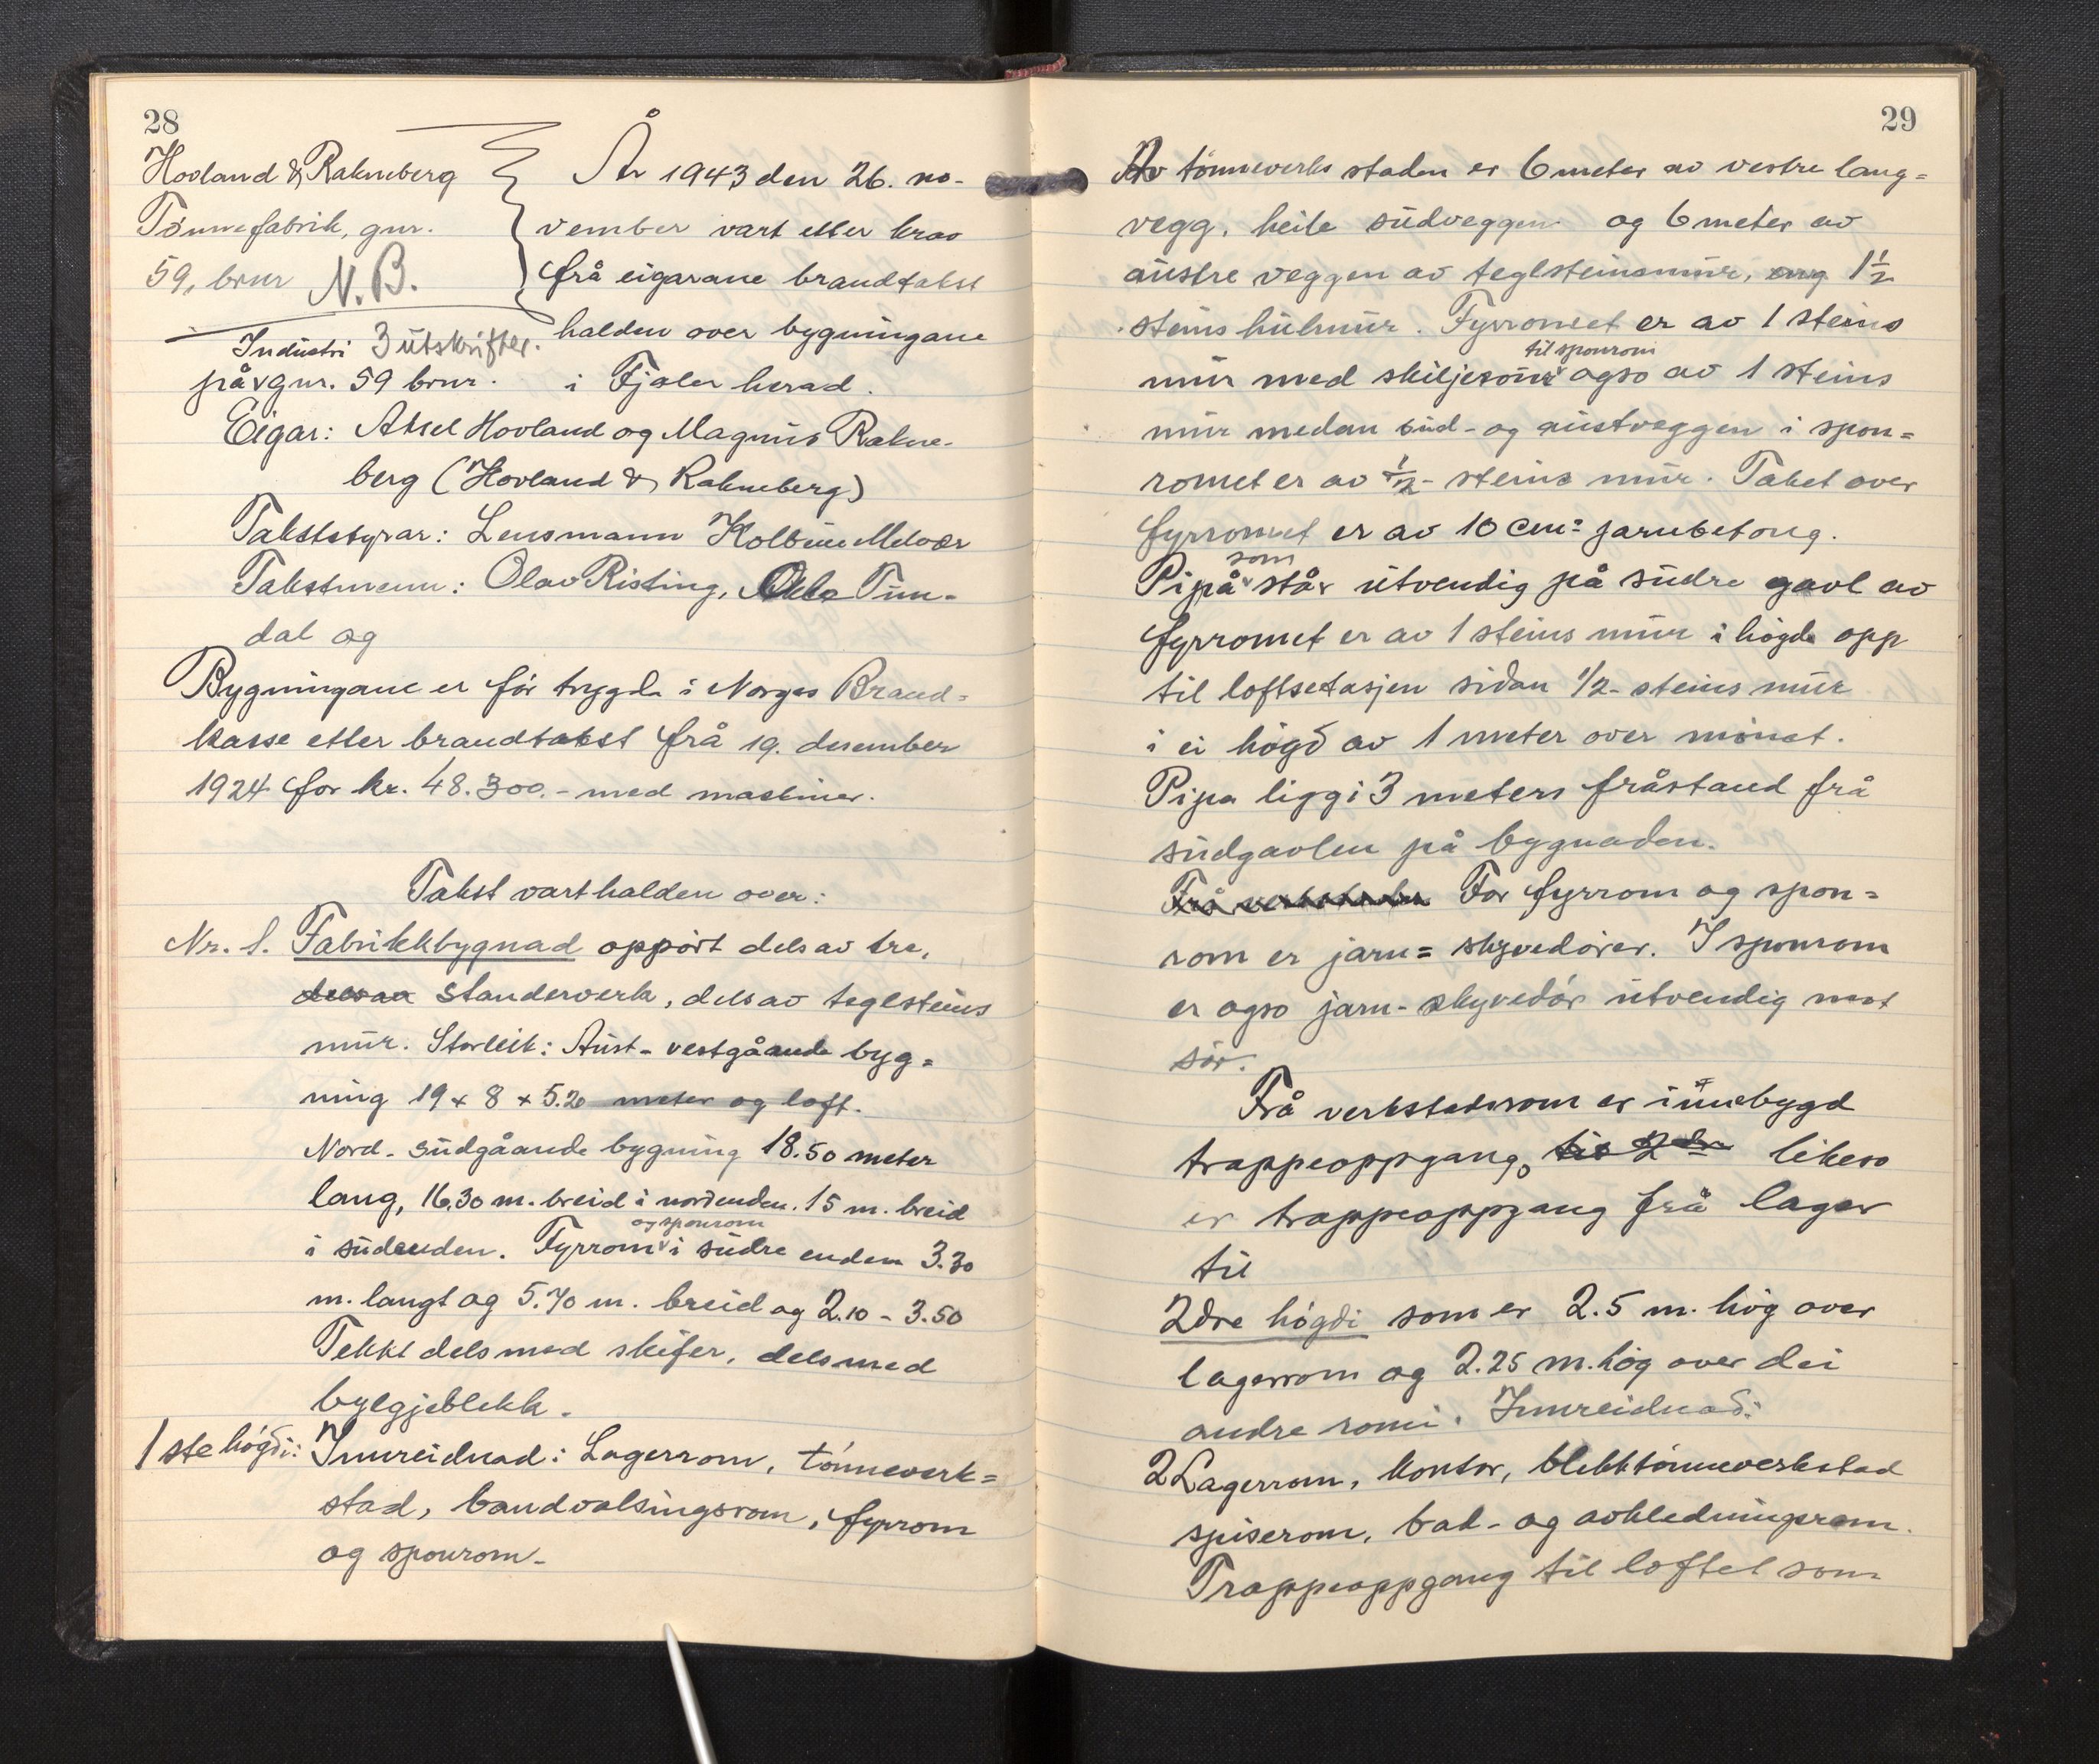 28
Hovland & Rakneberg
Tønnefabrik, gnr.
59, bnr N.B.
Industri 3 utskrifter.
År 1943 den 26. no-
vember vart etter krav
frå eigarane brandtakst
halden over bygningane
på gnr. 59 bnr. i Fjaler herad.
Eigar: Aksel Hovland og Magnus Rakne-
berg (Hovland & Rakneberg)
Takststyrar: Lensmann Kolbein Melvær
Takstmenn: Olav Risting, Tun-
dal og
Bygningane er før trygda i Norges Brand-
kasse etter brandtakst frå 19. desember
1924 for kr. 48.300.- med maskiner.
Takst vart halden over:
Nr. 1. Fabrikkbygnad oppørt dels av tre,
dels av standerverk, dels av teglsteins
mur. Storleik: Aust-vestgåande byg=
ning 19 x 8 x 5.20 meter og loft.
Nord-sudgåande bygning 18.50 meter
lang, 16,30 m. breid i nordenden. 15 m. breid
og sponrom
i sudenden. Fyrrom i sudre enden 3.30
m. langt og 5.70 m. breid og 2.10 - 3.50
Tekkt dels med skifer, dels med
bylgjeblekk.
1ste høgdi: Innreidnad: Lagerrom, tønneverk=
stad, bandvalsingsrom, fyrrom
og sponrom-
29
Av tønneverksstaden er 6 meter av vestre lang=
vegg, heile sudveggen og 6 meter av
austre veggen av teglsteinsmur, 1½
steins hulmur. Fyrromet er av 1 steins
til sponrom
mur med skiljemur ogso av 1 steins
mur medan sud- og austveggen i spon=
romet er av ½- steins mur. Taket over
fyrromet er av 10 cm= jarnbetong.
som
Pipa står utvendig på sudre gavl av
fyrromet er av 1 steins mur i høgde opp
til loftsetasjen sidan 1/2- steins mur
i ei høgd av 1 meter over mønet.
Pipa ligg i 3 meters fråstand frå
sudgavlen på bygnaden.
For fyrrom og spon=
rom er jarn= skyvedører. I sponrom
er ogso jarn-skyvedør utvendig mot
sør.
Frå verkstadrom er innebygd
trappeoppgang, til 2dre likeso
er trappeoppgang frå lager
til
2dre høgdi som er 2.5 m. høg over
lagerrom og 2.25 m. høg over dei
andre romi. Innreidnad:
2 Lagerrom, kontor, blekktønneverkstad
spiserom, bad- og avkledningsrom.
Trappeoppgang til loftet som